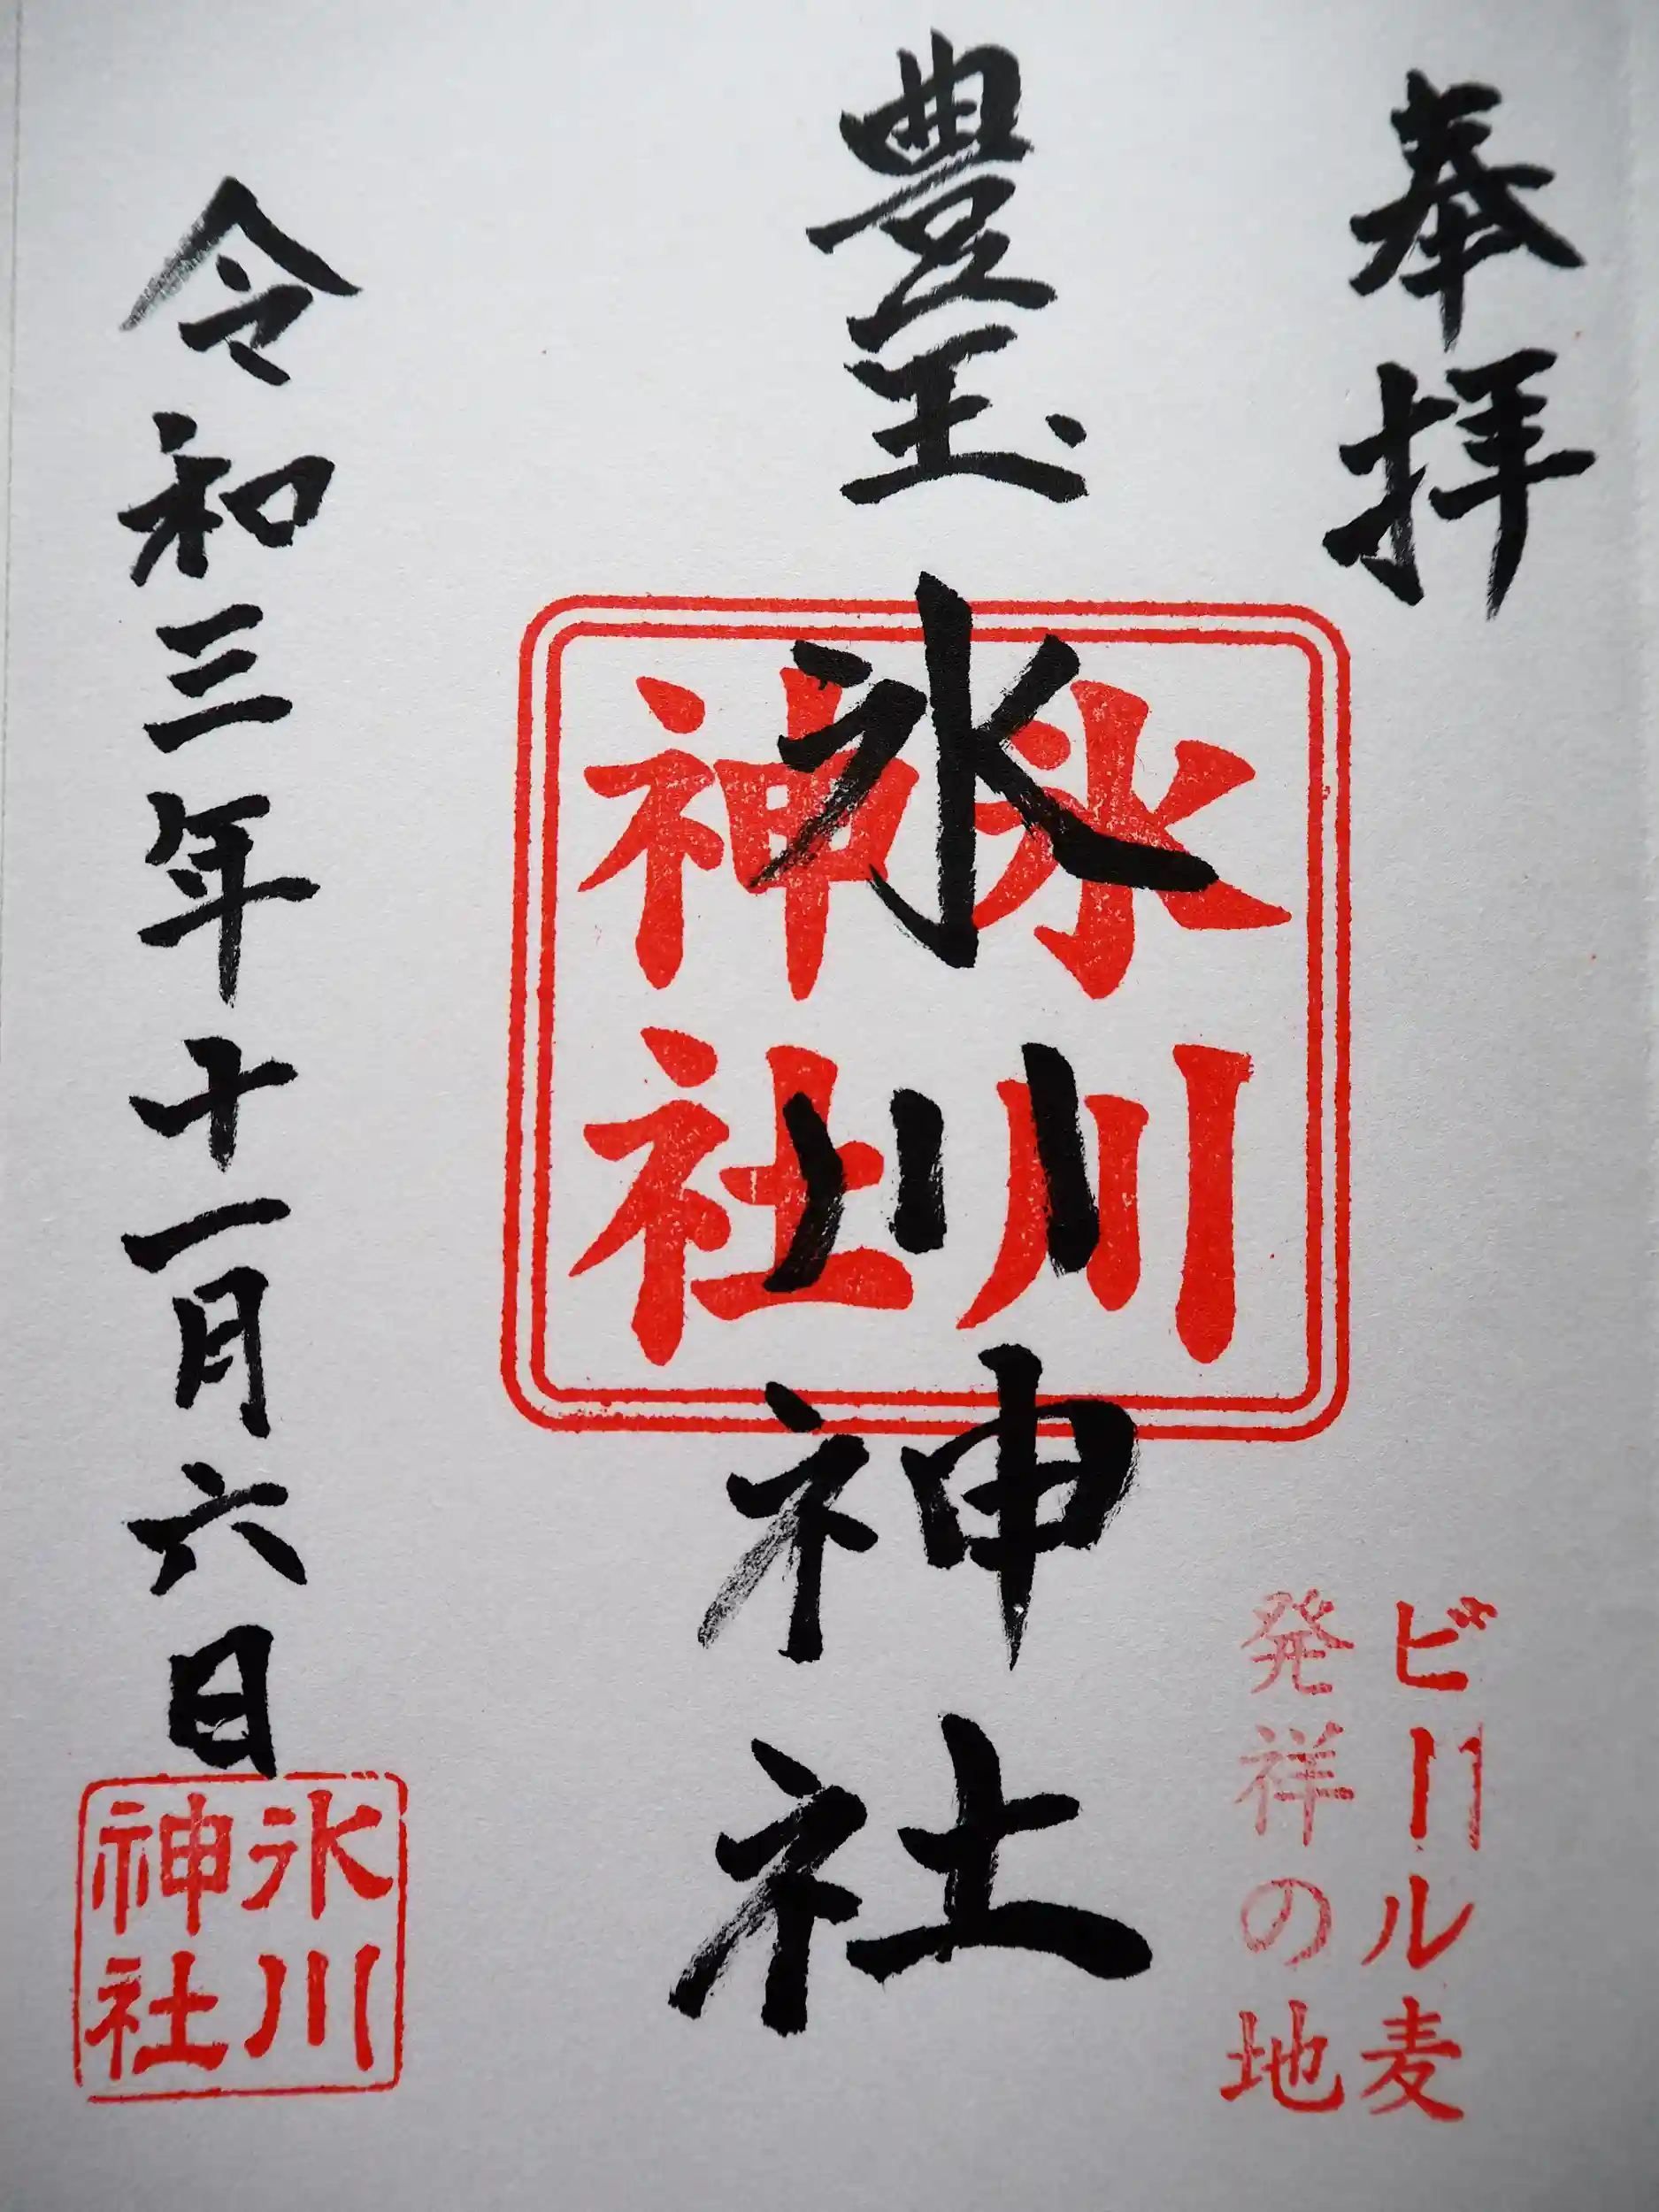 奉拝
ビール麦
発祥の地
豊玉氷川神社
氷川
神社
令和三年十一月六日
氷川
神社